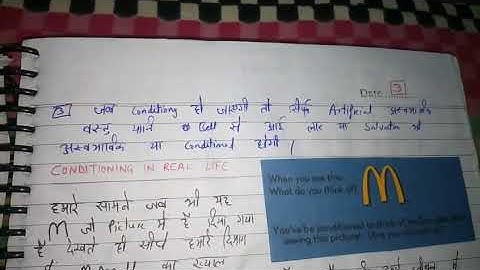 Date 3
③ जब Conditiong हो जाएगी तो सिर्फ Artificial अस्वभाविक
वस्तु यानि Bell से आई लार या Salvation भी
अस्वभाविक या Conditioned होगी।
CONDITIONING IN REAL LIFE
हमारे सामने जब भी यह
M जो Picture में है दिया गया
है देखते ही सीधा हमारे दिमाग
का ख्याल
When you see this,
What do you think of?
You've been conditioned to think of
seeing this picture!